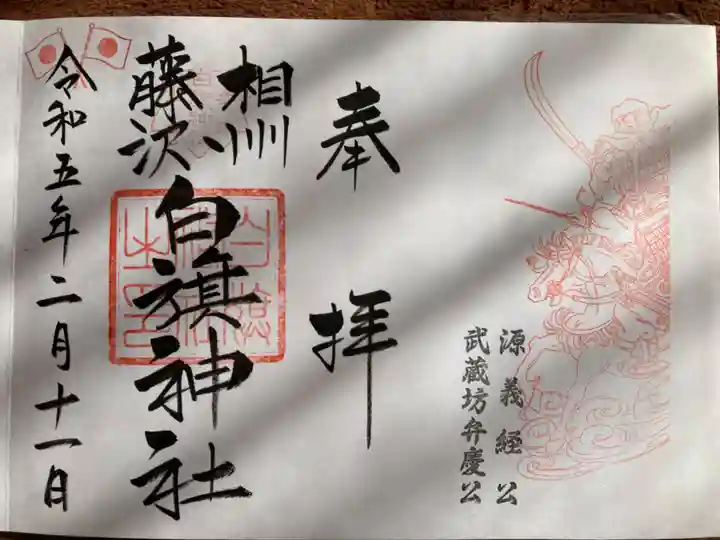 源義経公
武蔵坊弁慶公
奉拝
相州
藤沢
白旗神社
令和五年二月十一日